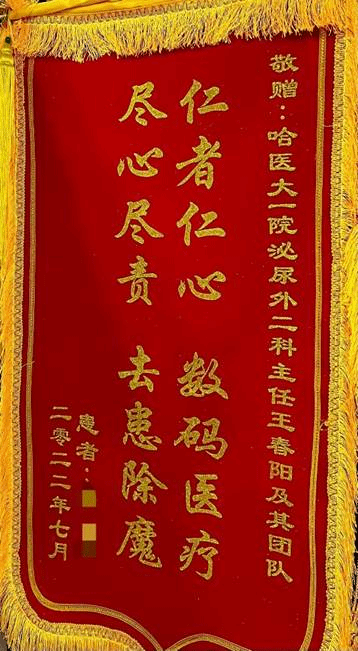 敬赠：哈医大一院泌尿外二科主任王春阳及其团队
仁者仁心 数码医疗
尽心尽责 去患除魔
患者：
二零二二年七月